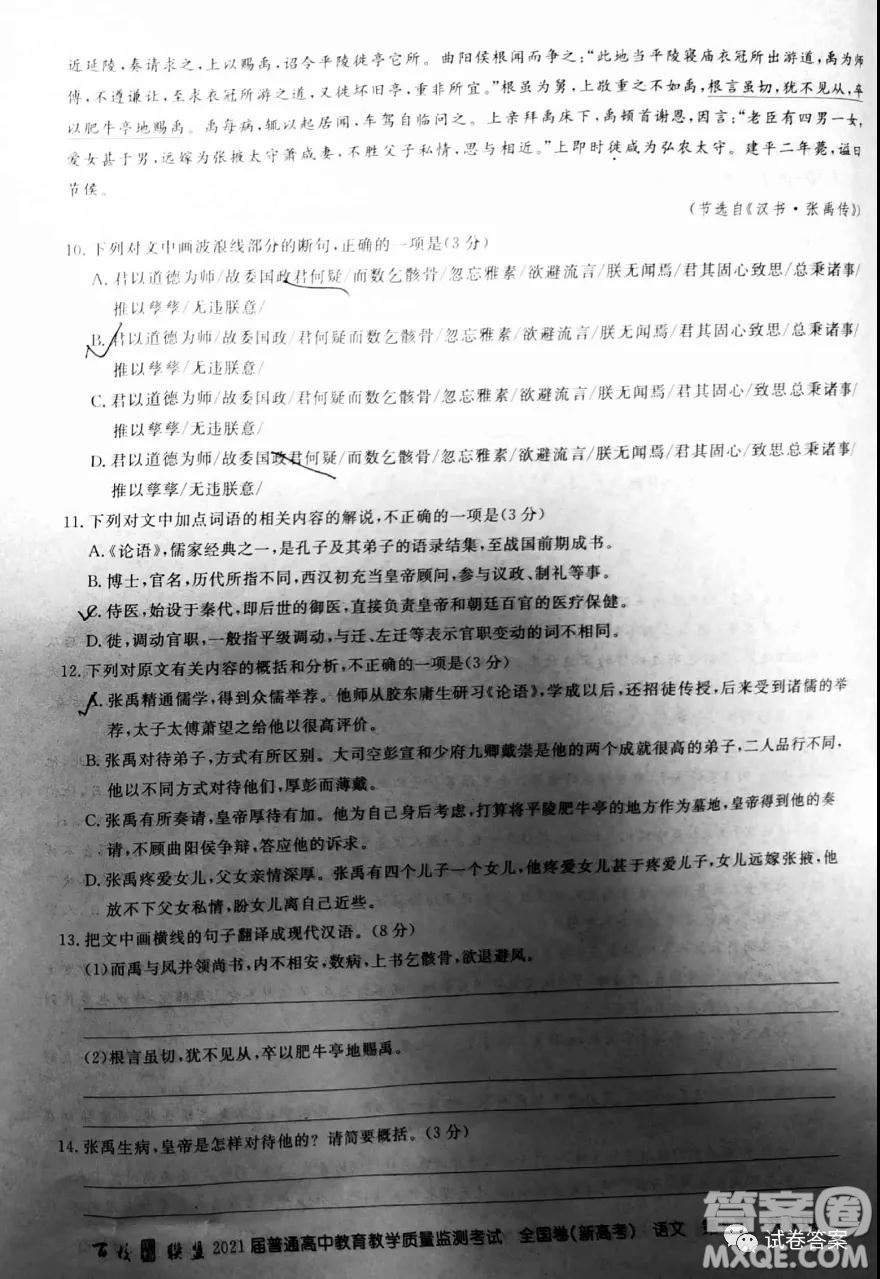 近延陵，奏请求之，上以赐禹，诏令平陵徙亭它所。曲阳侯根闻而争之：“此地当平陵寝庙衣冠所出游道，禹为师
傅，不遵谦让，至求衣冠所游之道，又徙坏旧亭，重非所宜。”根虽为舅，上敬重之不如禹，根言虽切，犹不见从，卒
以肥牛亭地赐禹。禹每病，辄以起居闻，车驾自临问之。上亲拜禹床下，禹顿首谢恩，因言：“老臣有四男一女，
爱女甚于男，远嫁为张掖太守萧咸妻，不胜父子私情，思与相近。”上即时徙咸为弘农太守。建平二年薨，谥曰
节侯。
（节选自《汉书·张禹传》）
10. 下列对文中画波浪线部分的断句，正确的一项是（3分）
A. 君以道德为师/故委国政君何疑/而数乞骸骨/忽忘雅素/欲避流言/朕无闻焉/君其固心致思/总秉诸事/
推以孳孳/无违朕意/
B. 君以道德为师/故委国政/君何疑而数乞骸骨/忽忘雅素/欲避流言/朕无闻焉/君其固心致思/总秉诸事/
推以孳孳/无违朕意/
C. 君以道德为师/故委国政/君何疑而数乞骸骨/忽忘雅素/欲避流言/朕无闻焉/君其固心/致思总秉诸事/
推以孳孳/无违朕意/
D. 君以道德为师/故委国政君何疑/而数乞骸骨/忽忘雅素/欲避流言/朕无闻焉/君其固心/致思总秉诸事/
推以孳孳/无违朕意/
11. 下列对文中加点词语的相关内容的解说，不正确的一项是（3分）
A.《论语》，儒家经典之一，是孔子及其弟子的语录结集，至战国前期成书。
B. 博士，官名，历代所指不同，西汉初充当皇帝顾问，参与议政、制礼等事。
C. 侍医，始设于秦代，即后世的御医，直接负责皇帝和朝廷百官的医疗保健。
D. 徙，调动官职，一般指平级调动，与迁、左迁等表示官职变动的词不相同。
12. 下列对原文有关内容的概括和分析，不正确的一项是（3分）
A. 张禹精通儒学，得到众儒举荐。他师从胶东庸生研习《论语》，学成以后，还招徒传授，后来受到诸儒的举
荐，太子太傅萧望之给他以很高评价。
B. 张禹对待弟子，方式有所区别。大司空彭宣和少府九卿戴崇是他的两个成就很高的弟子，二人品行不同，
他以不同方式对待他们，厚彭而薄戴。
C. 张禹有所奏请，皇帝厚待有加。他为自己身后考虑，打算将平陵肥牛亭的地方作为墓地，皇帝得到他的奏
请，不顾曲阳侯争辩，答应他的诉求。
D. 张禹疼爱女儿，父女亲情深厚。张禹有四个儿子一个女儿，他疼爱女儿甚于疼爱儿子，女儿远嫁张掖，他
放不下父女私情，盼女儿离自己近些。
13. 把文中画横线的句子翻译成现代汉语。（8分）
（1）而禹与凤并领尚书，内不相安，数病，上书乞骸骨，欲退避凤。
（2）根言虽切，犹不见从，卒以肥牛亭地赐禹。
14. 张禹生病，皇帝是怎样对待他的？请简要概括。（3分）
百校 联盟 2021届普通高中教育教学质量监测考试 全国卷（新高考） 语文
答案圈
试卷答案